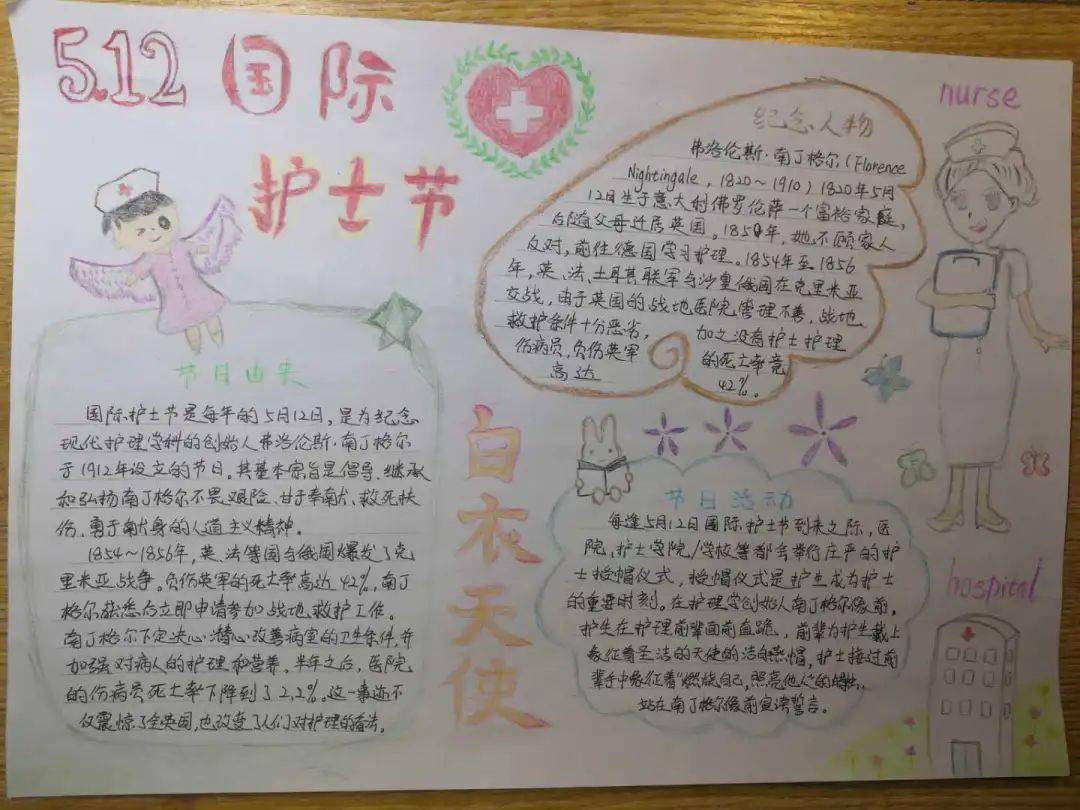 5.12 国际
护士节
nurse
纪念人物
弗洛伦斯·南丁格尔(Florence
Nightingale,1820~1910)1820年5月
12日生于意大利佛罗伦萨一个富裕家庭,
后随父母迁居英国。1850年,她不顾家人
反对,前往德国学习护理。1854年至1856
年,英、法、土耳其联军与沙皇俄国在克里米亚
交战,由于英国的战地医院管理不善,战地
救护条件十分恶劣,加之没有护士护理
伤病员,负伤英军的死亡率竟
高达42%。
节日由来
国际护士节是每年的5月12日,是为纪念
现代护理学科的创始人弗洛伦斯·南丁格尔
于1912年设立的节日。其基本宗旨是倡导、继承
和弘扬南丁格尔不畏艰险、甘于奉献、救死扶
伤、勇于献身的人道主义精神。
1854~1856年,英、法等国与俄国爆发了克
里米亚战争。负伤英军的死亡率高达42%,南丁
格尔获悉后立即申请参加战地救护工作。
南丁格尔下定决心潜心改善病室的卫生条件,并
加强对病人的护理和营养。半年之后,医院
的伤病员死亡率下降到了2.2%。这一事迹不
仅震惊了全英国,也改变了人们对护理的看法。
白衣天使
节日活动
每逢5月12日国际护士节到来之际,医
院,护士学院/学校等都会举行庄严的护
士授帽仪式,授帽仪式是护生成为护士
的重要时刻。在护理学创始人南丁格尔像前,
护生在护理前辈面前直跪,前辈为护生戴上
象征着圣洁的天使的洁白燕帽,护士接过前
辈手中象征着“燃烧自己,照亮他人”的蜡烛,
站在南丁格尔像前宣读誓言。
hospital